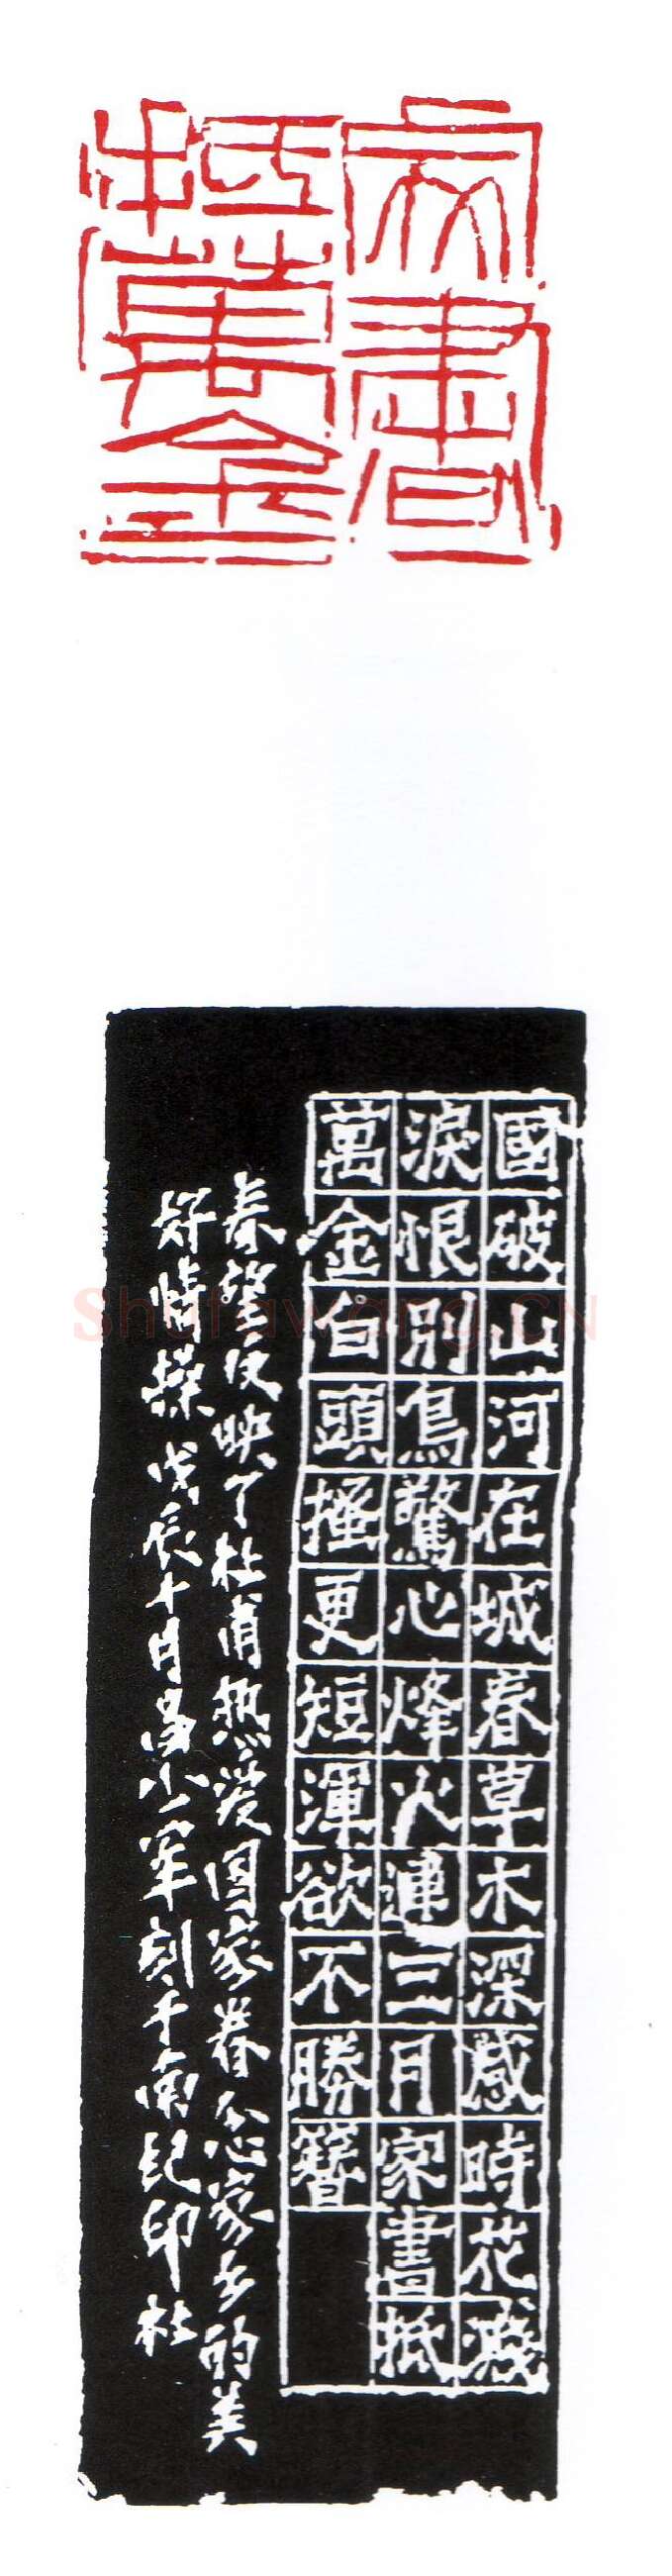 家書
抵萬金
國破山河在城春草木深感時花濺
淚恨別鳥驚心烽火連三月家書抵
萬金白頭搔更短渾欲不勝簪
春望反映了杜甫热爱国家眷念家乡的美
好情操戊辰十月军刻于南纪印社
Shufawang.CN